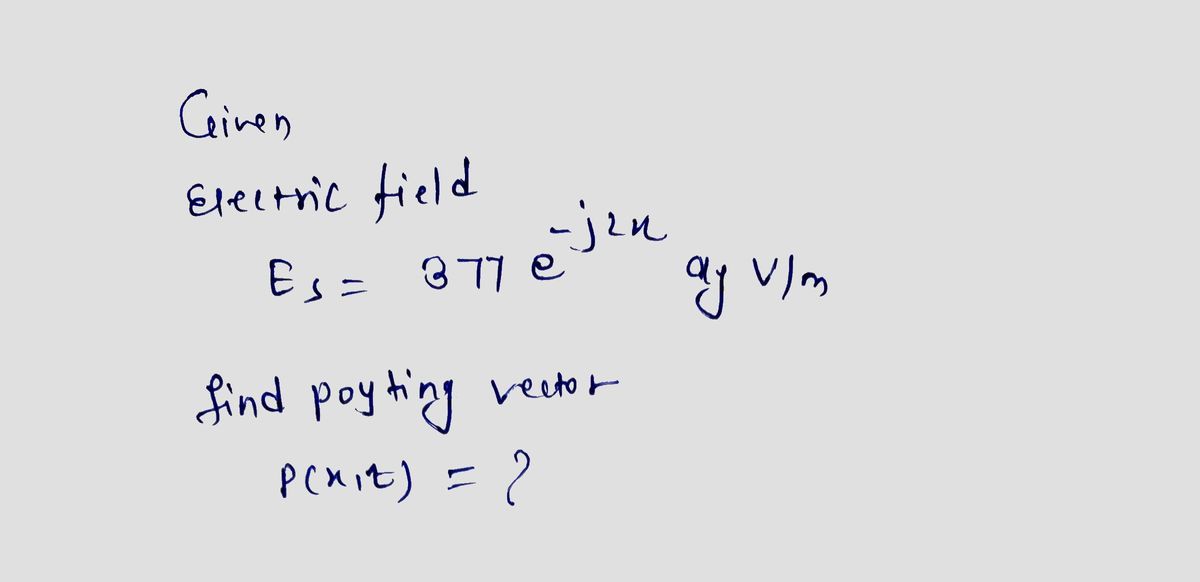 Given
Electric field
Es = 377 e^-j2x ay V/m
find poyting vector
P(x,t) = ?